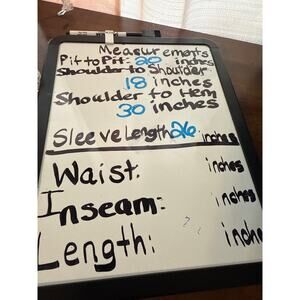 Measurements
Pit to Pit: 20 inches
Shoulder to Shoulder
18 inches
Shoulder to Hem
30 inches
Sleeve Length 26 inches
Waist: inches
Inseam: inches
Length: inches